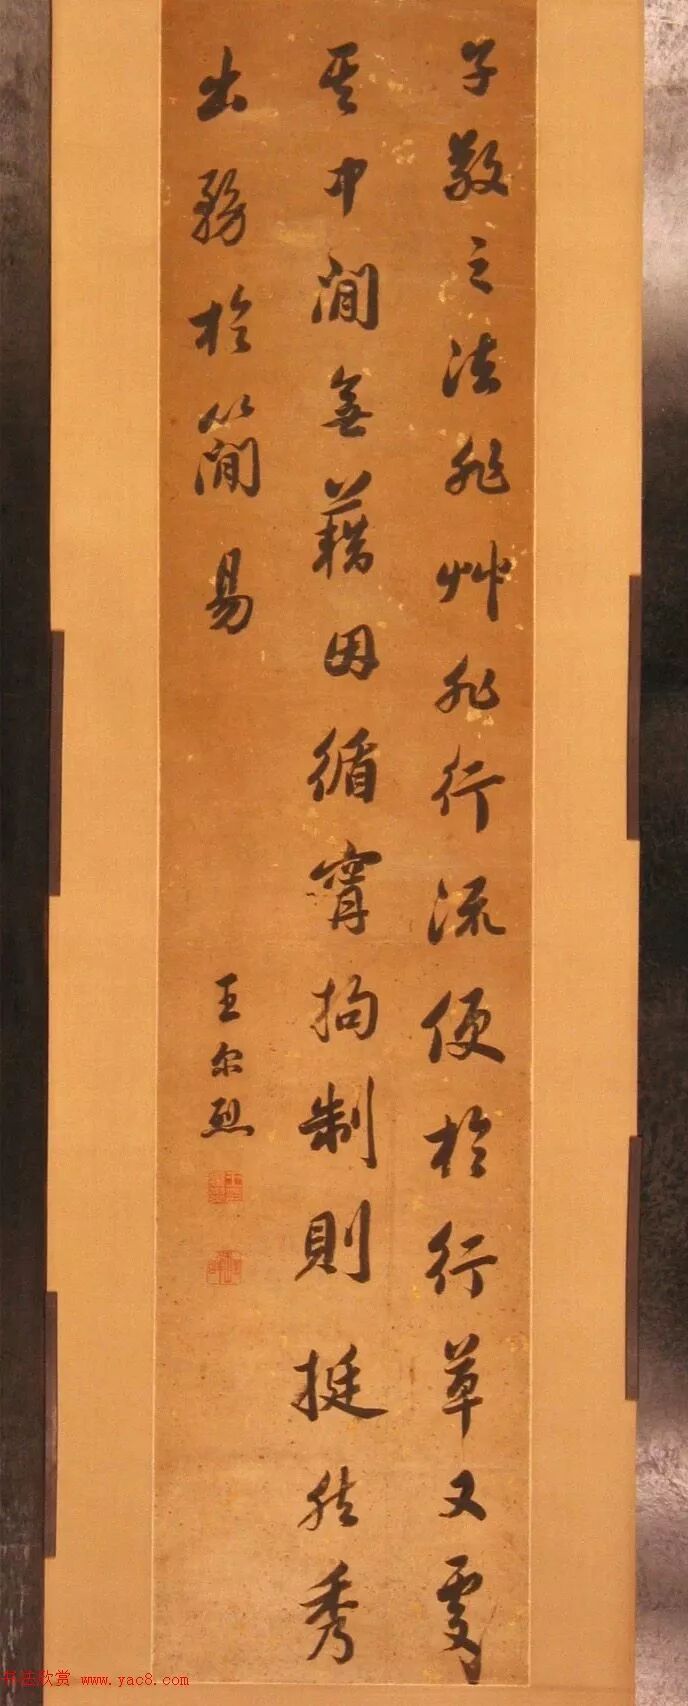 子敬之法非艸非行流便於行草又處
其中間無藉因循寧拘制則挺然秀
出務於簡易
王尔烈
书法欣赏 www.yac8.com